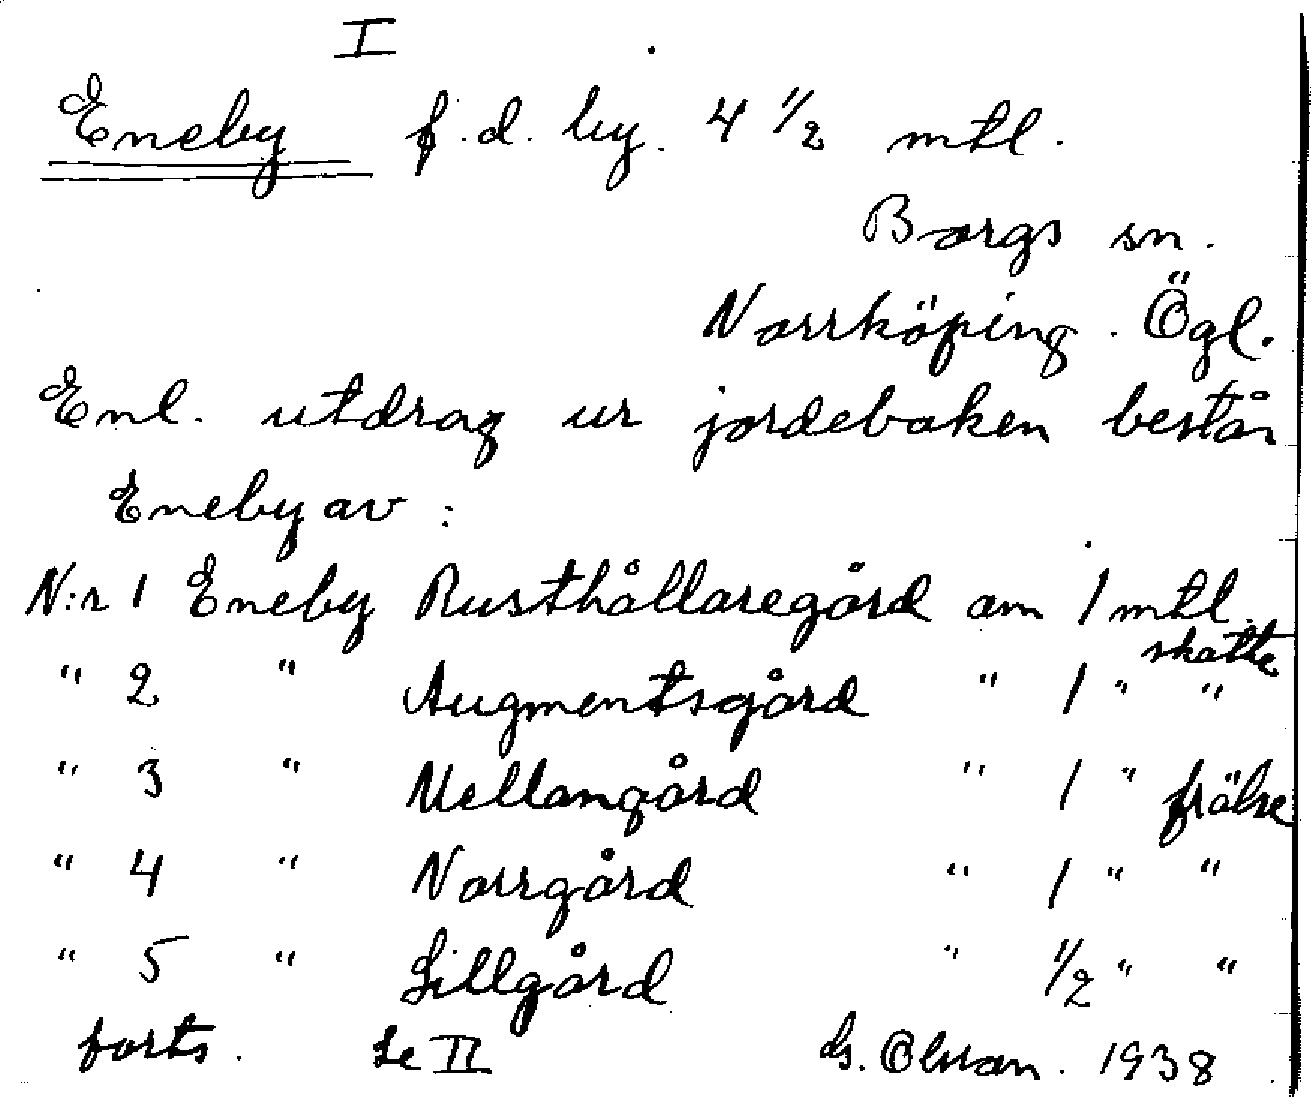 I
Eneby f.d. by. 4 1/2 mtl.
Borgs sn.
Norrköping. Ögl.
Enl. utdrag ur jordeboken består
Eneby av:
N:r 1 Eneby Rusthållaregård om 1 mtl. skatte
" 2 " Augmentsgård " 1 " "
" 3 " Mellangård " 1 " frälse
" 4 " Norrgård " 1 " "
" 5 " Lillgård " 1/2 " "
forts. Se II G. Olsson. 1938